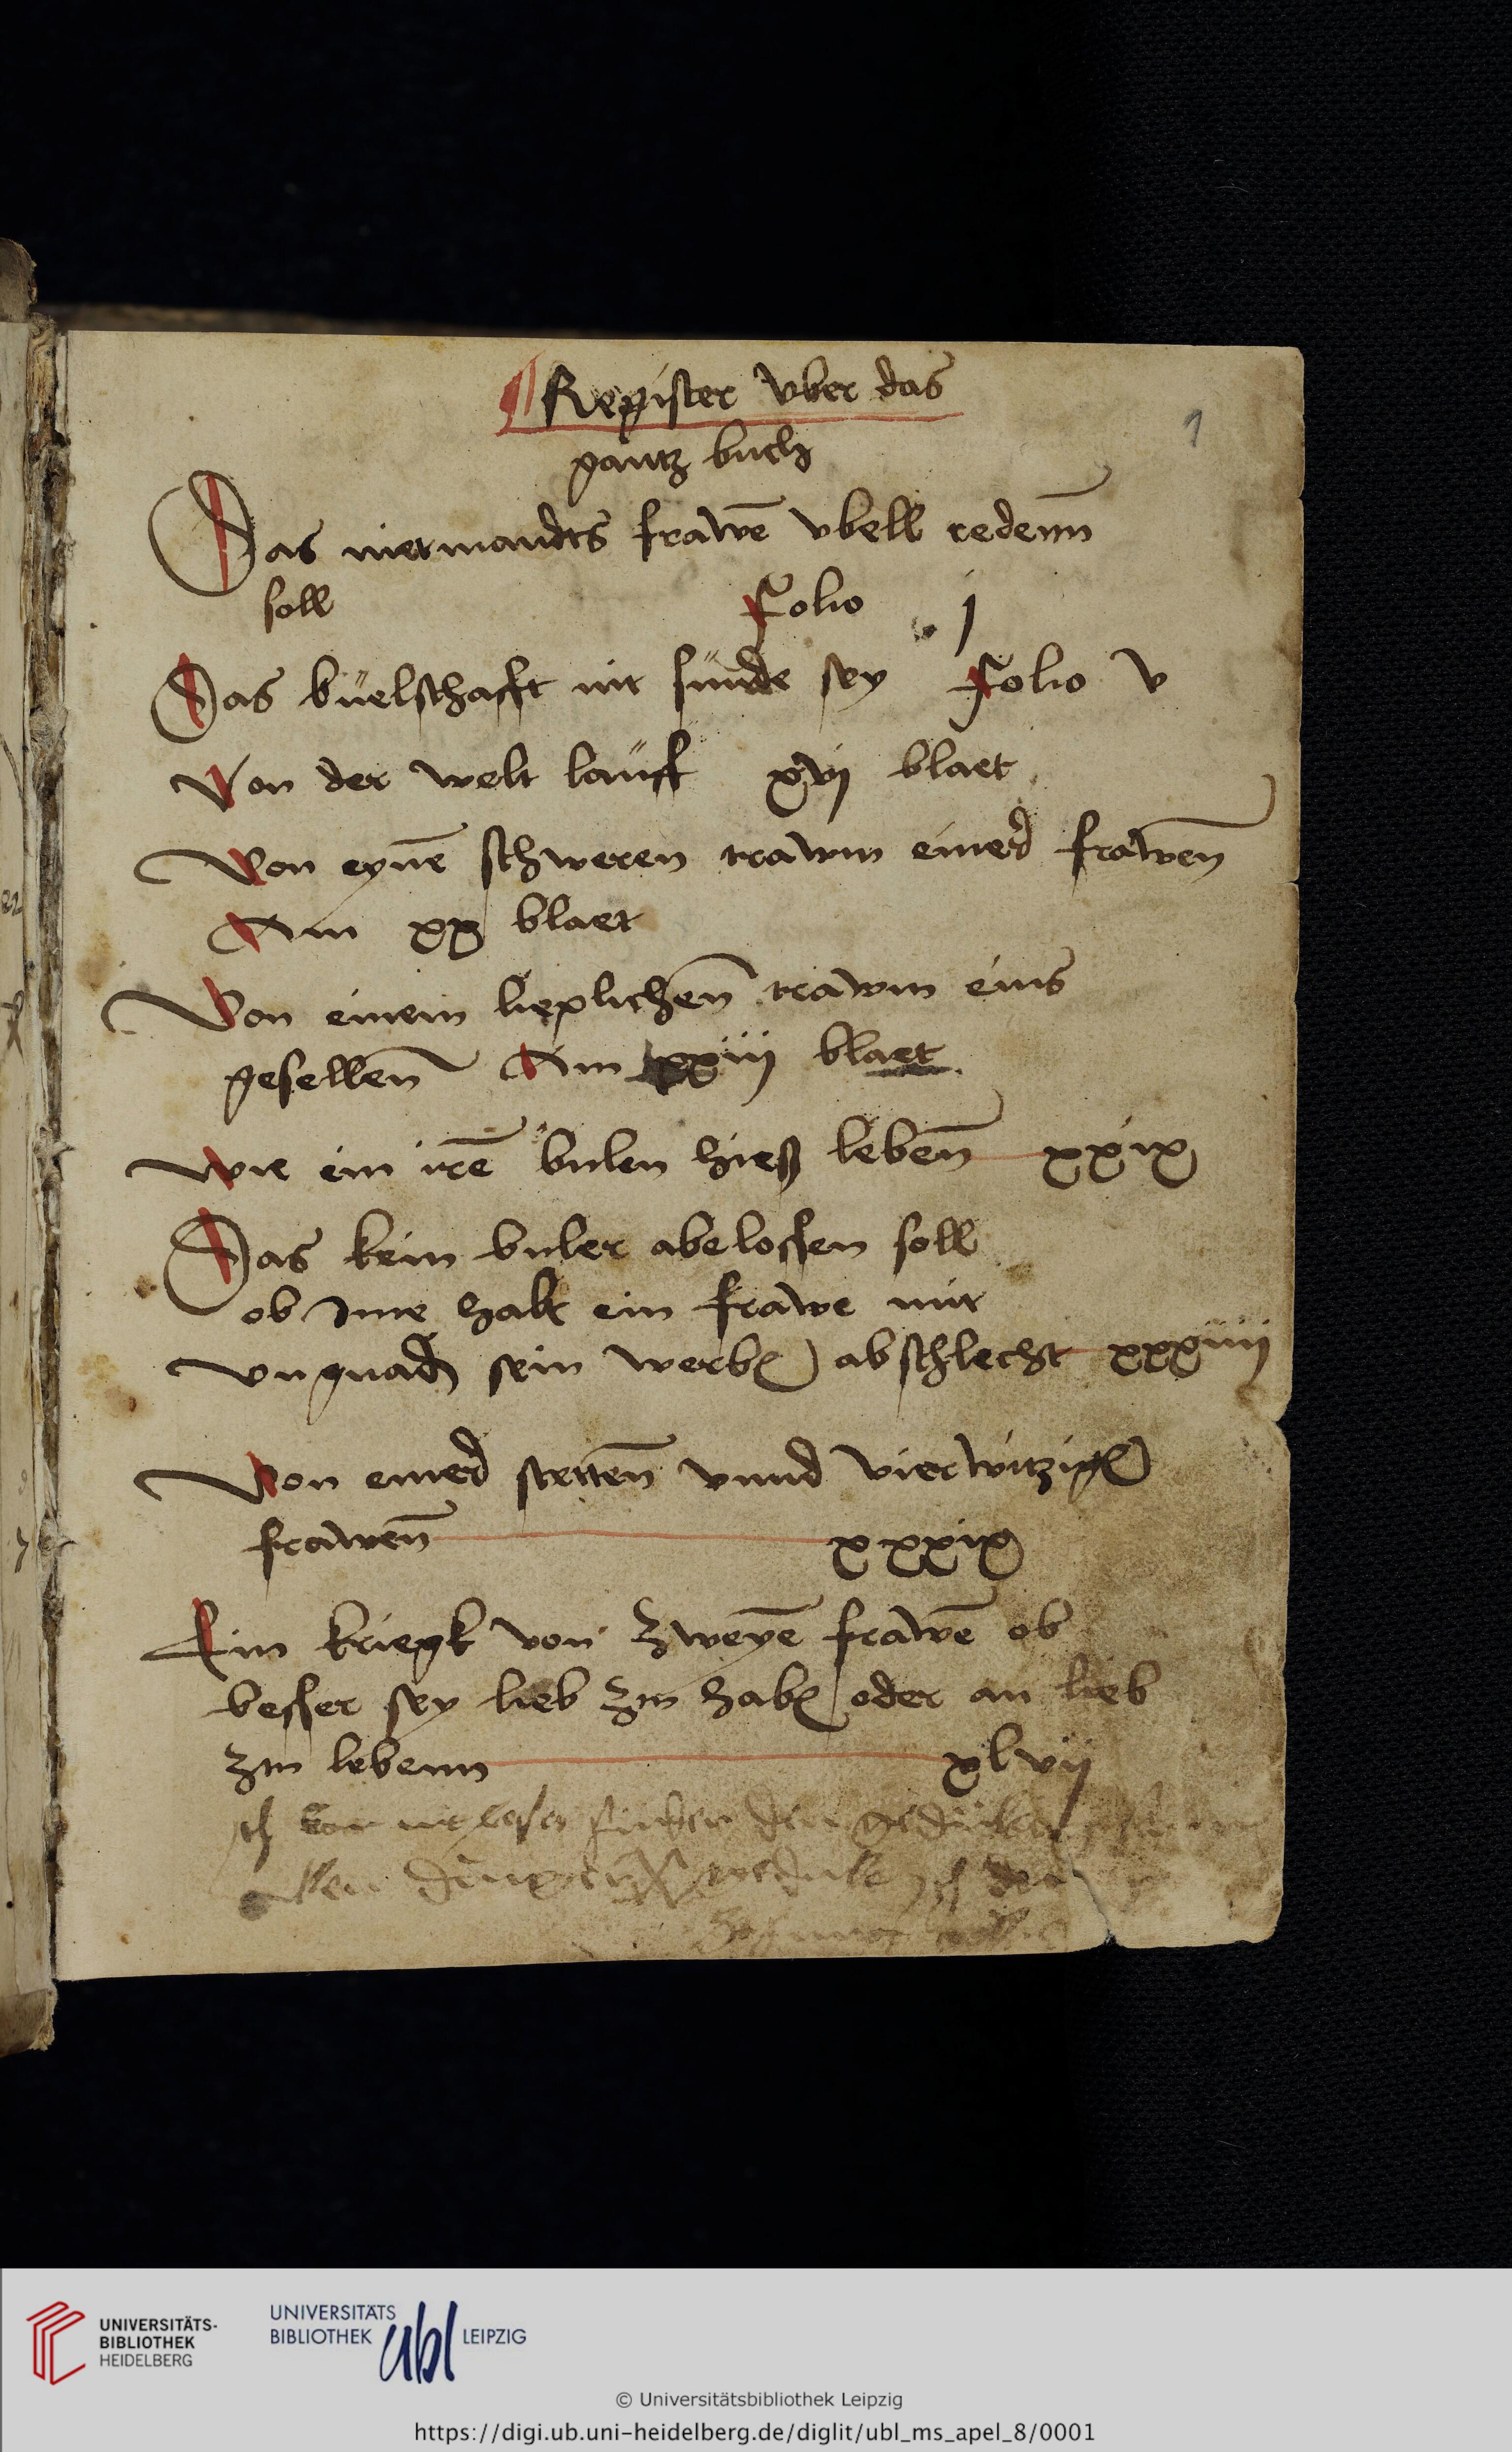 Register vber das
1
gantz buch
Das niemandts frawē vbell redenn
soll Folio j
Das büelschafft nit sünde sey Folio v
Von der welt laüff xvj blaet
Von eynē schweren trawm einer frawen̄
Am xx blaet
Von einem lieplichen̄ trawm eins
gesellen̄ Am xxiij blaet
wie ein irē bulen hieß leben̄ xxix
Das kein buler abelossen soll
ob ime halt ein frawe mit
vngnadē sein werbē abschlecht xxxiiij
Von einer stetten̄ vnnd vierwitzigē
frawen̄ xxxix
Ein kriegk von zweyē frawē ob
besser sey lieb zu habē oder an lieb
zu lebenn xlvij
UNIVERSITÄTS-
BIBLIOTHEK
HEIDELBERG
UNIVERSITÄTS
BIBLIOTHEK ubl LEIPZIG
© Universitätsbibliothek Leipzig
https://digi.ub.uni-heidelberg.de/diglit/ubl_ms_apel_8/0001